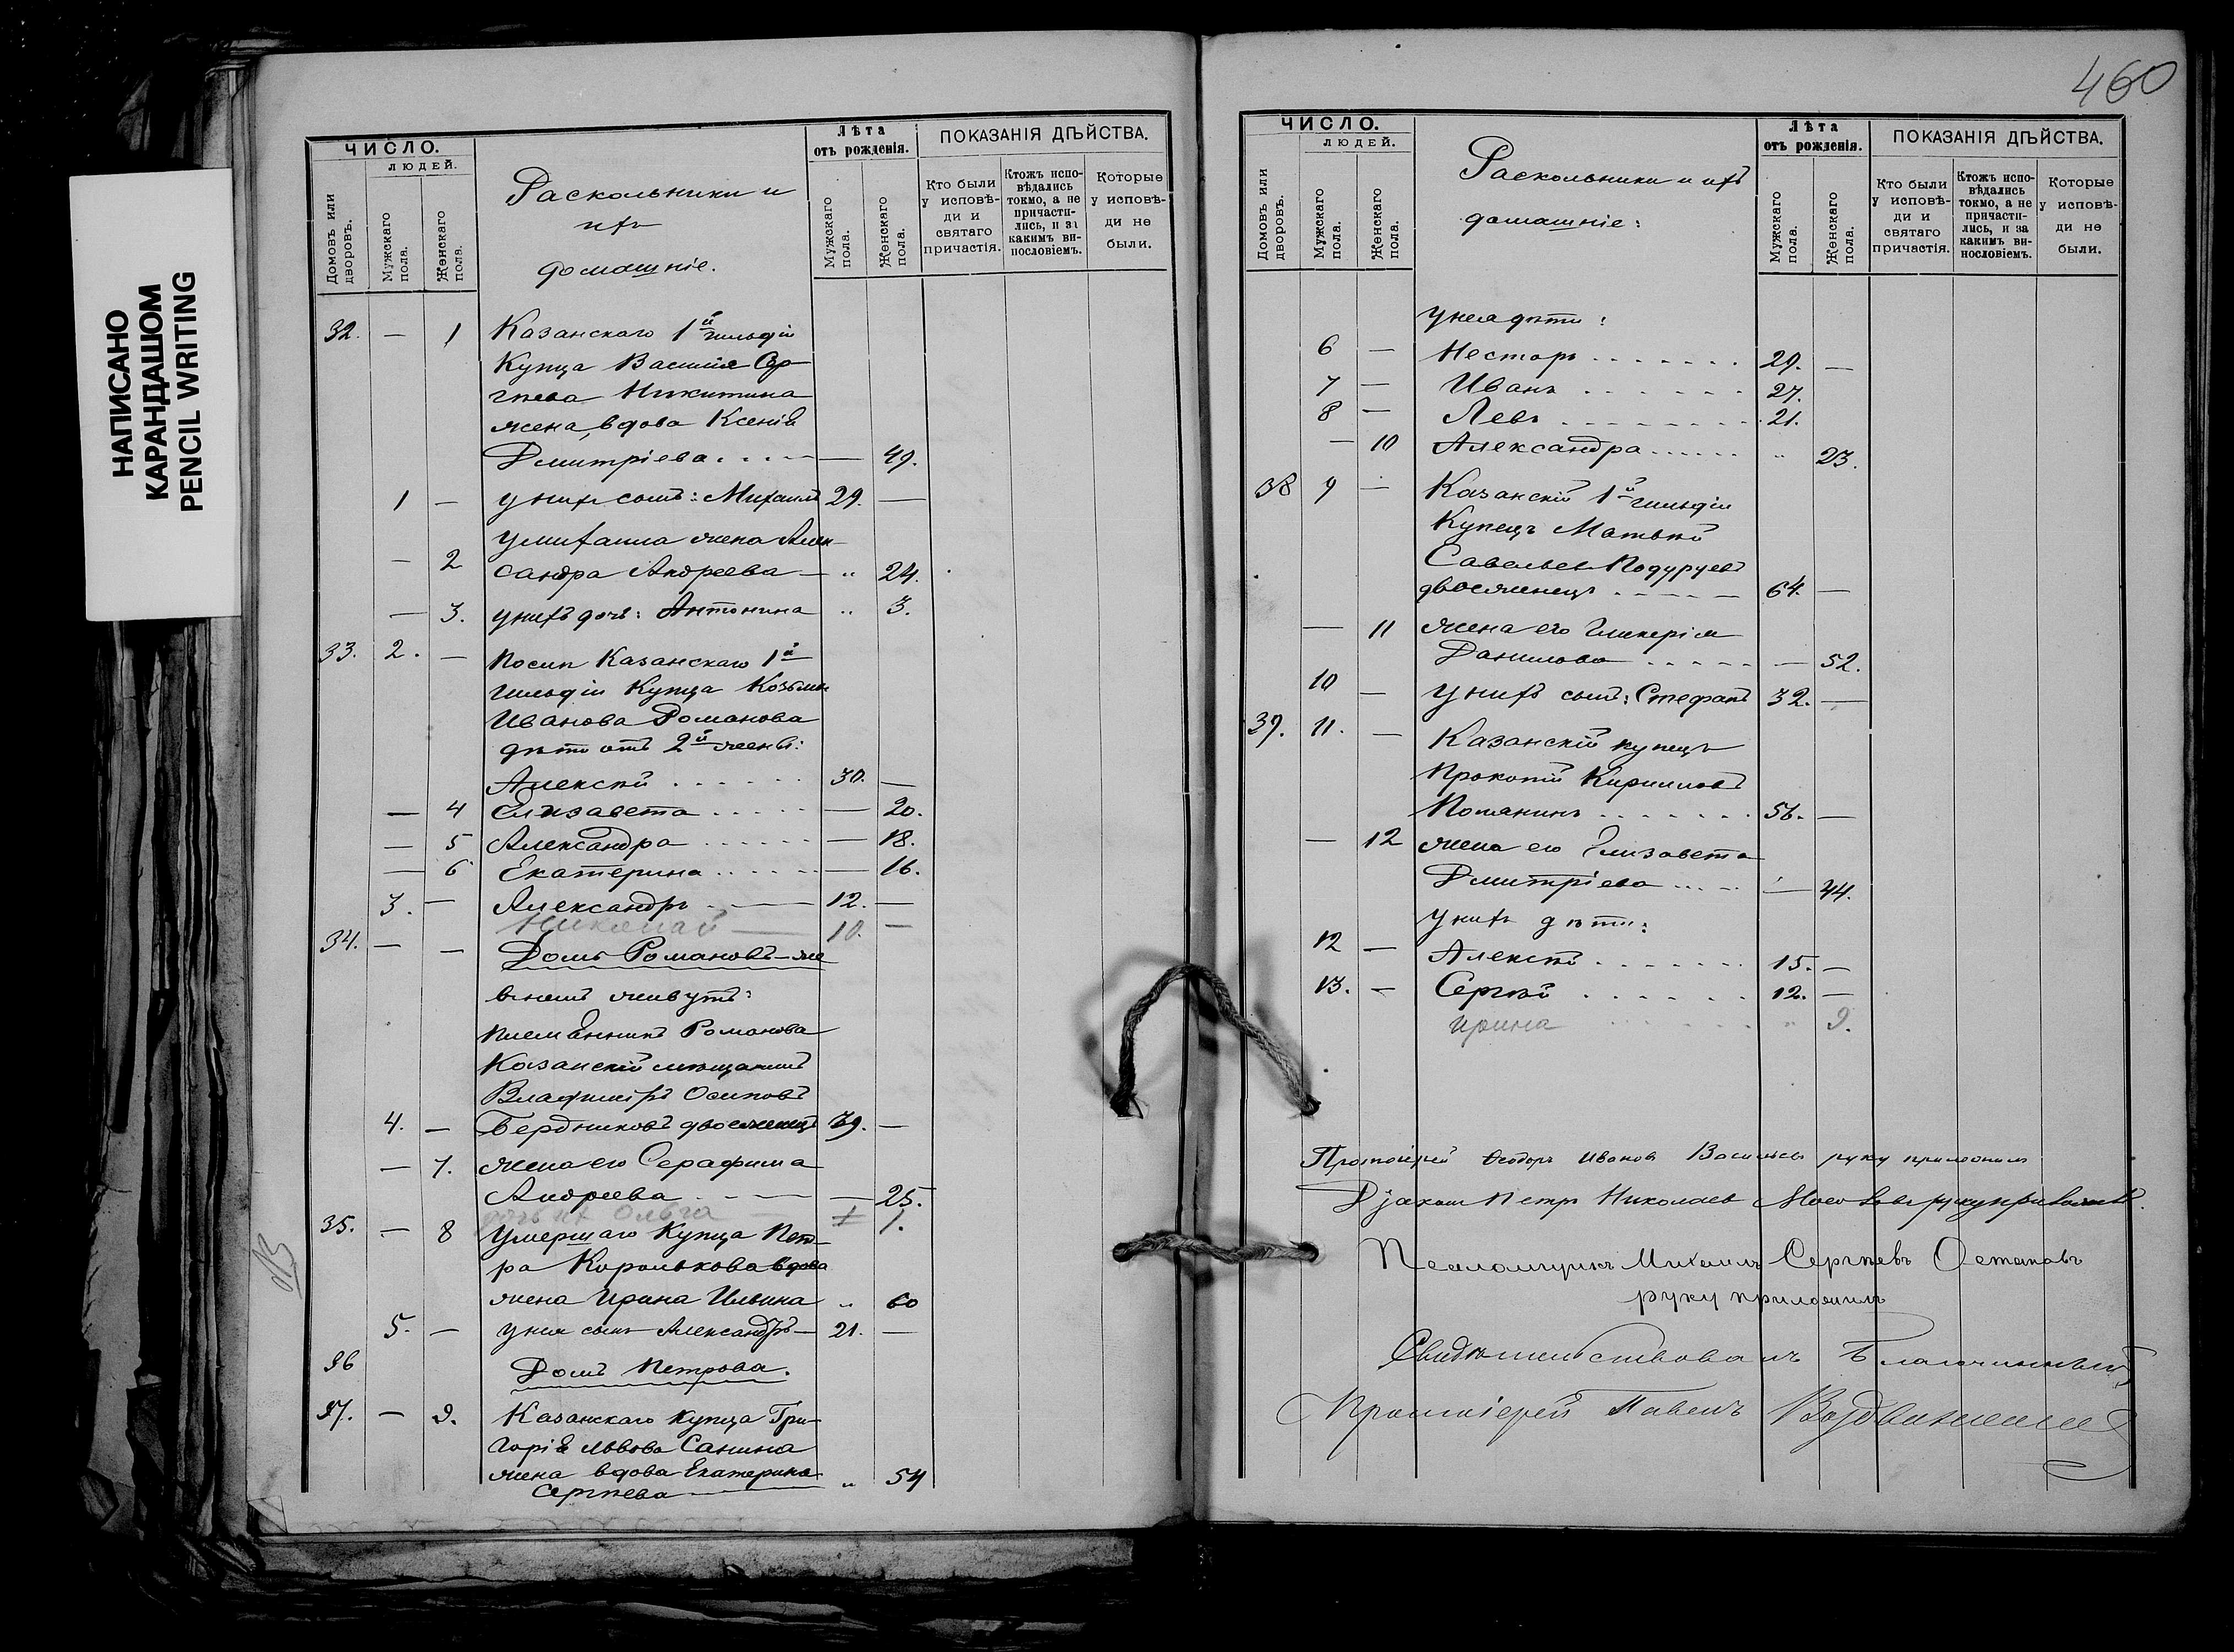 НАПИСАНО
КАРАНДАШОМ
PENCIL WRITING
ЧИСЛО.
ЛЮДЕЙ.
Домовъ или дворовъ.
Мужскаго пола.
Женскаго пола.
Раскольники и
ихъ
домашніе.
Лѣта
отъ рожденія.
Мужскаго пола.
Женскаго пола.
ПОКАЗАНІЯ ДѢЙСТВА.
Кто были у исповѣди и святаго причастія.
Ктожъ исповѣдались токмо, а не причастились, и за какимъ винословіемъ.
Которые у исповѣди не были.
32. — 1 Казанскаго 1й гильдіи
Купца Василія Сер-
гѣева Никитина
жена, вдова Ксенія
Дмитріева . . . — 49.
1 — у нихъ сынъ: Михаилъ 29. —
у Михаила жена Алек-
— 2 сандра Андреева — „ 24.
— 3. у нихъ дочь: Антонина „ 3.
33. 2. — Казанскаго 1й
гильдіи Купца Козьмы
Иванова Романова
дѣти отъ 2й жены:
Алексѣй . . . . 30. —
— 4 Елизавета . . . . — 20.
— 5 Александра . . . . — 18.
— 6 Екатерина . . . . — 16.
3. — Александръ — 12. —
Николай — 10. —
34. — — Домъ Романовъ — же
въ немъ живутъ:
племянникъ Романова
Казанскій мѣщанинъ
Владиміръ Осиповъ
4. — Бердниковъ двоеженецъ 39. —
— 7. жена его Серафима
Андреева . — — 25.
дочь их Ольга — 1.
35. — 8 Умершаго Купца Пет-
ра Королькова вдова
жена Ирина Ильина „ 60
5. — у нея сынъ Александръ — 21. —
36 Домъ Петрова.
37. — 9. Казанскаго купца Гри-
горія Львова Санина
жена вдова Екатерина
Сергѣева „ 54
460
ЧИСЛО.
ЛЮДЕЙ.
Домовъ или дворовъ.
Мужскаго пола.
Женскаго пола.
Раскольники и ихъ
домашніе:
Лѣта
отъ рожденія.
Мужскаго пола.
Женскаго пола.
ПОКАЗАНІЯ ДѢЙСТВА.
Кто были у исповѣди и святаго причастія.
Ктожъ исповѣдались токмо, а не причастились, и за какимъ винословіемъ.
Которые у исповѣди не были.
у нея дѣти:
6 — Несторъ . . . . 29. —
7 — Иванъ . . . . 27.
8 — Левъ . . . . 21.
— 10 Александра . . . . „ 23.
38 9 — Казанскій 1й гильдіи
Купецъ Матвѣй
Савельев Подуруевъ
двоеженецъ . . . . 64. —
— 11 жена его Гликерія
Данилова . . . . — 52.
10 — у нихъ сынъ: Стефанъ 32. —
39. 11. — Казанскій купецъ
Прокопій Кирилловъ
Потанинъ . . . . 56. —
— 12 жена его Елизавета
Дмитріева . . . — 44.
у нихъ дѣти:
12 — Алексѣй . . . . 15. —
13. — Сергѣй . . . . 12. —
Ирина . . . . „ 9.
Протоіерей Ѳеодоръ Иванов Васильев руку приложилъ
Діаконъ Петръ Николаев руку приложилъ.
Псаломщикъ Михаилъ Сергѣевъ Остаповъ
руку приложилъ
Свидѣтельствовалъ Благочинный
Протоіерей Павелъ